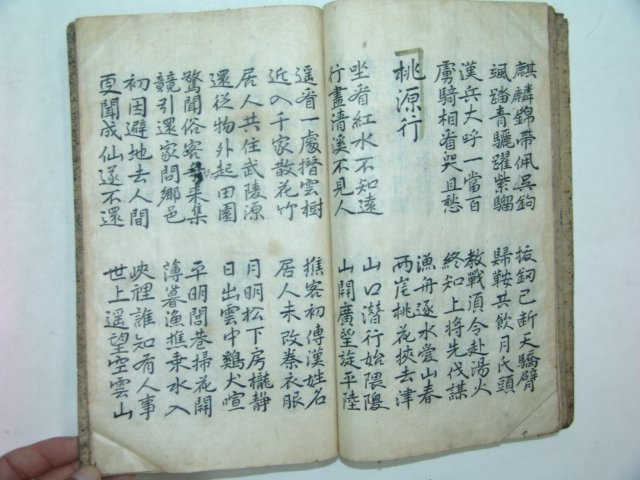 麒麟錦帶佩吳鉤
颯踏青驪躍紫騮
拔釼已斷天驕臂
歸鞍共飲月氏頭
漢兵大呼一當百
虜騎相看哭且愁
教戰湏令赴湯火
終知上將先伐謀
桃源行
漁舟逐水愛山春
兩崖桃花挾去津
坐看紅水不知遠
行盡清溪不見人
山口潛行始隈隩
山開廣望旋平陸
遥看一處攢雲樹
近入千家散花竹
樵客初傳漢姓名
居人未改秦衣服
居人共住武陵源
還從物外起田園
月明松下房櫳靜
日出雲中鷄犬喧
驚聞俗客來集
競引還家問鄉邑
平明閭巷掃花開
薄暮漁樵乘水入
初因避地去人間
更聞成仙遂不還
峽裡誰知有人事
世上遥望空雲山